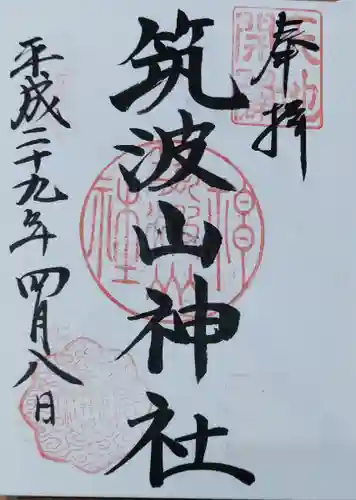 奉拝
天地開闢
筑波山神社
平成二十九年四月八日